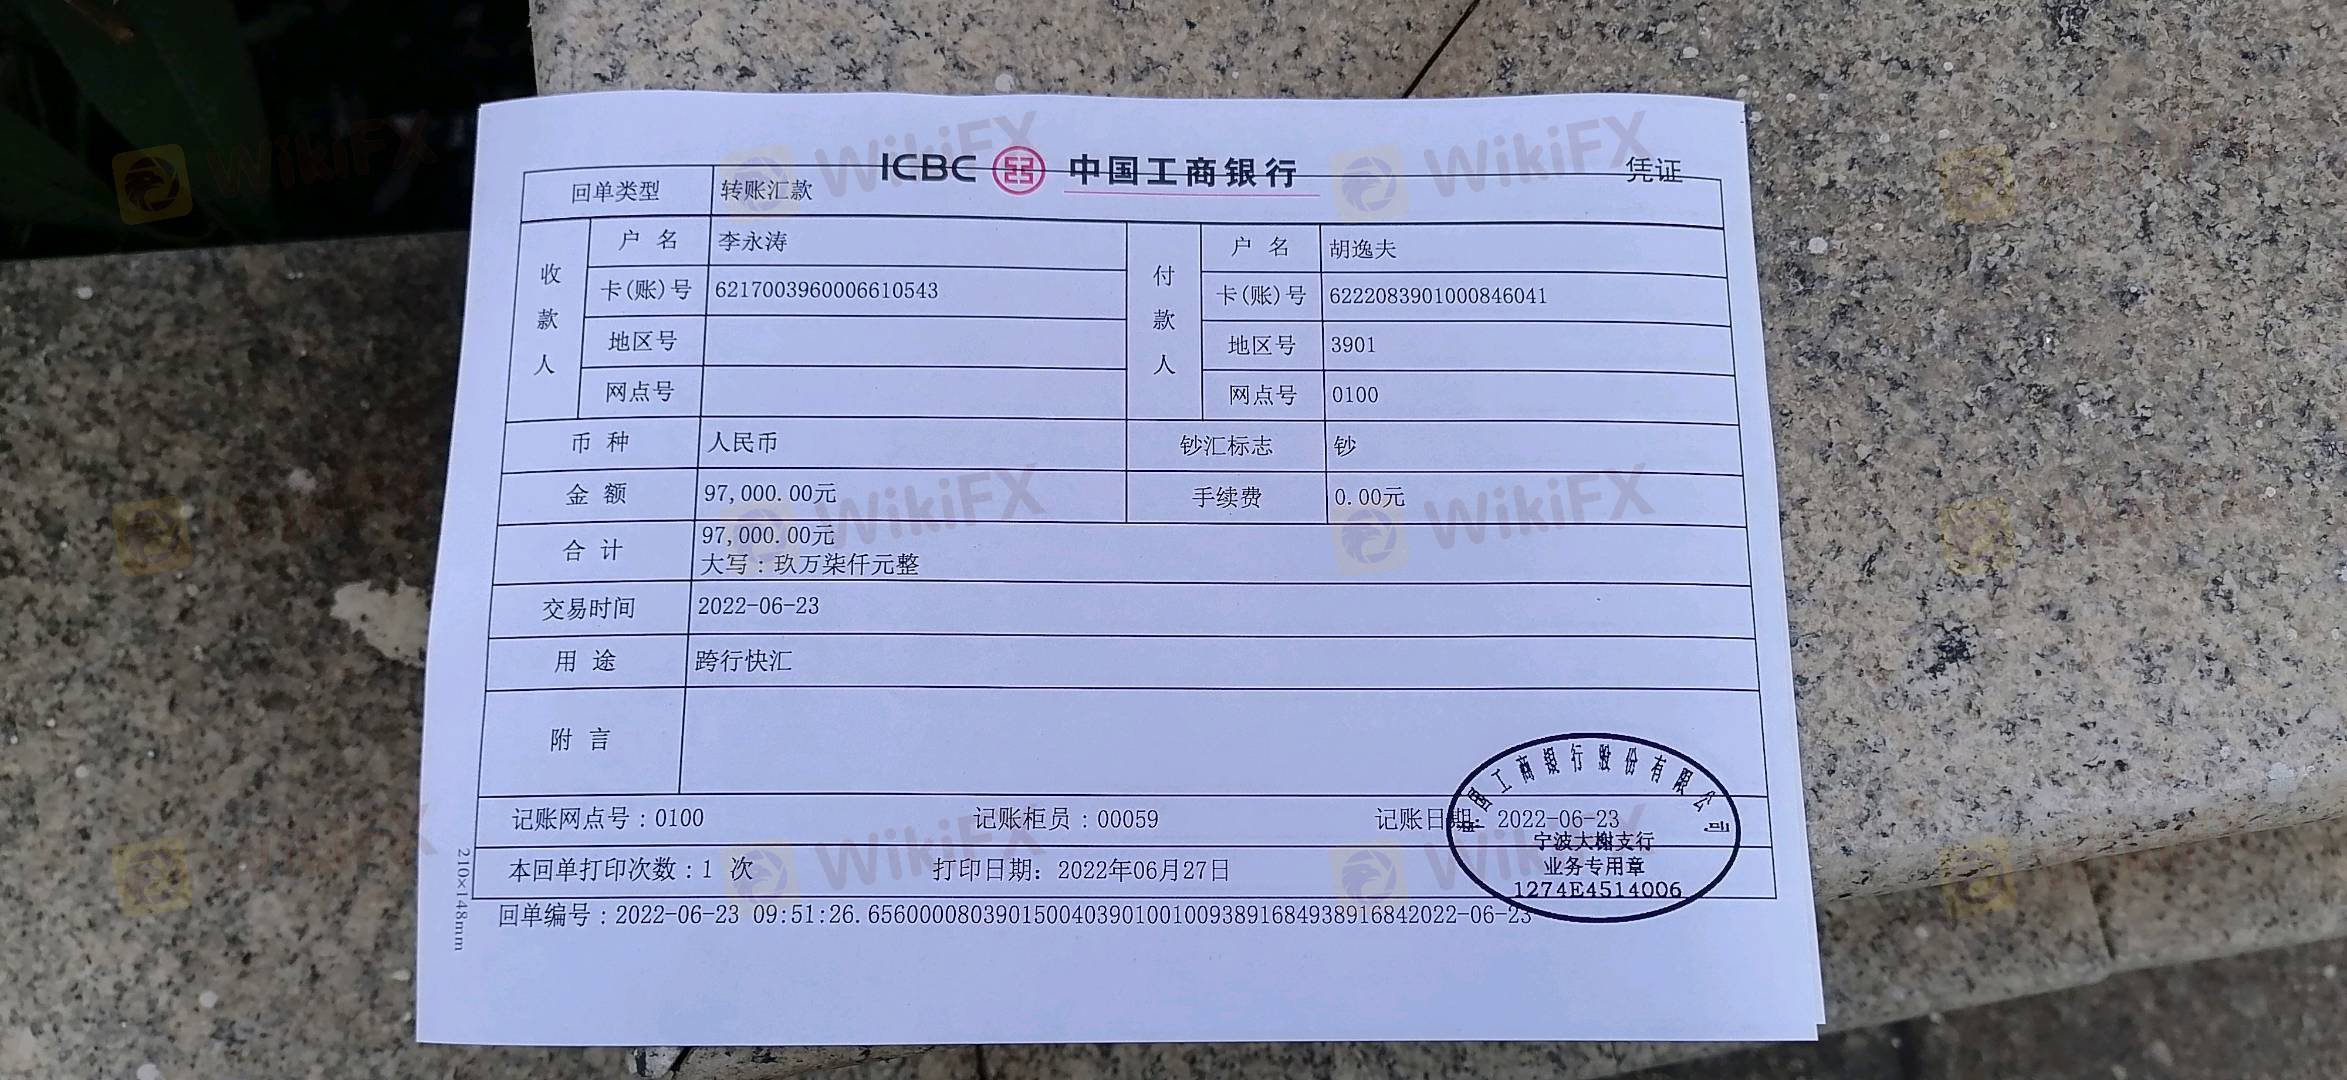 ICBC 中国工商银行 凭证
回单类型 转账汇款
收款人 户名 李永涛 付款人 户名 胡逸夫
卡(账)号 6217003960006610543 卡(账)号 6222083901000846041
地区号 地区号 3901
网点号 网点号 0100
币种 人民币 钞汇标志 钞
金额 97,000.00元 手续费 0.00元
合计 97,000.00元
大写:玖万柒仟元整
交易时间 2022-06-23
用途 跨行快汇
附言
记账网点号:0100 记账柜员:00059 记账日期: 2022-06-23
本回单打印次数:1 次 打印日期: 2022年06月27日
回单编号:2022-06-23 09:51:26.65600008039015004039010010093891684938916842022-06-23
中国工商银行股份有限公司
宁波大榭支行
业务专用章
1274E4514006
210×148mm
WikiFX
WikiFX
WikiFX
WikiFX
WikiFX
WikiFX
WikiFX